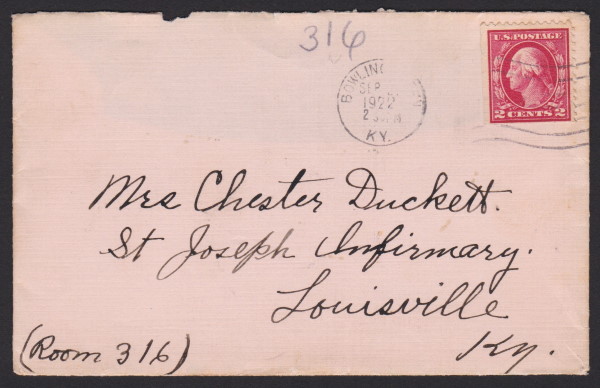 316
U.S. POSTAGE
2 CENTS 2
BOWLING
SEP
1922
KY.
Mrs Chester Duckett.
St Joseph Infirmary.
Louisville
Ky.
(Room 316)